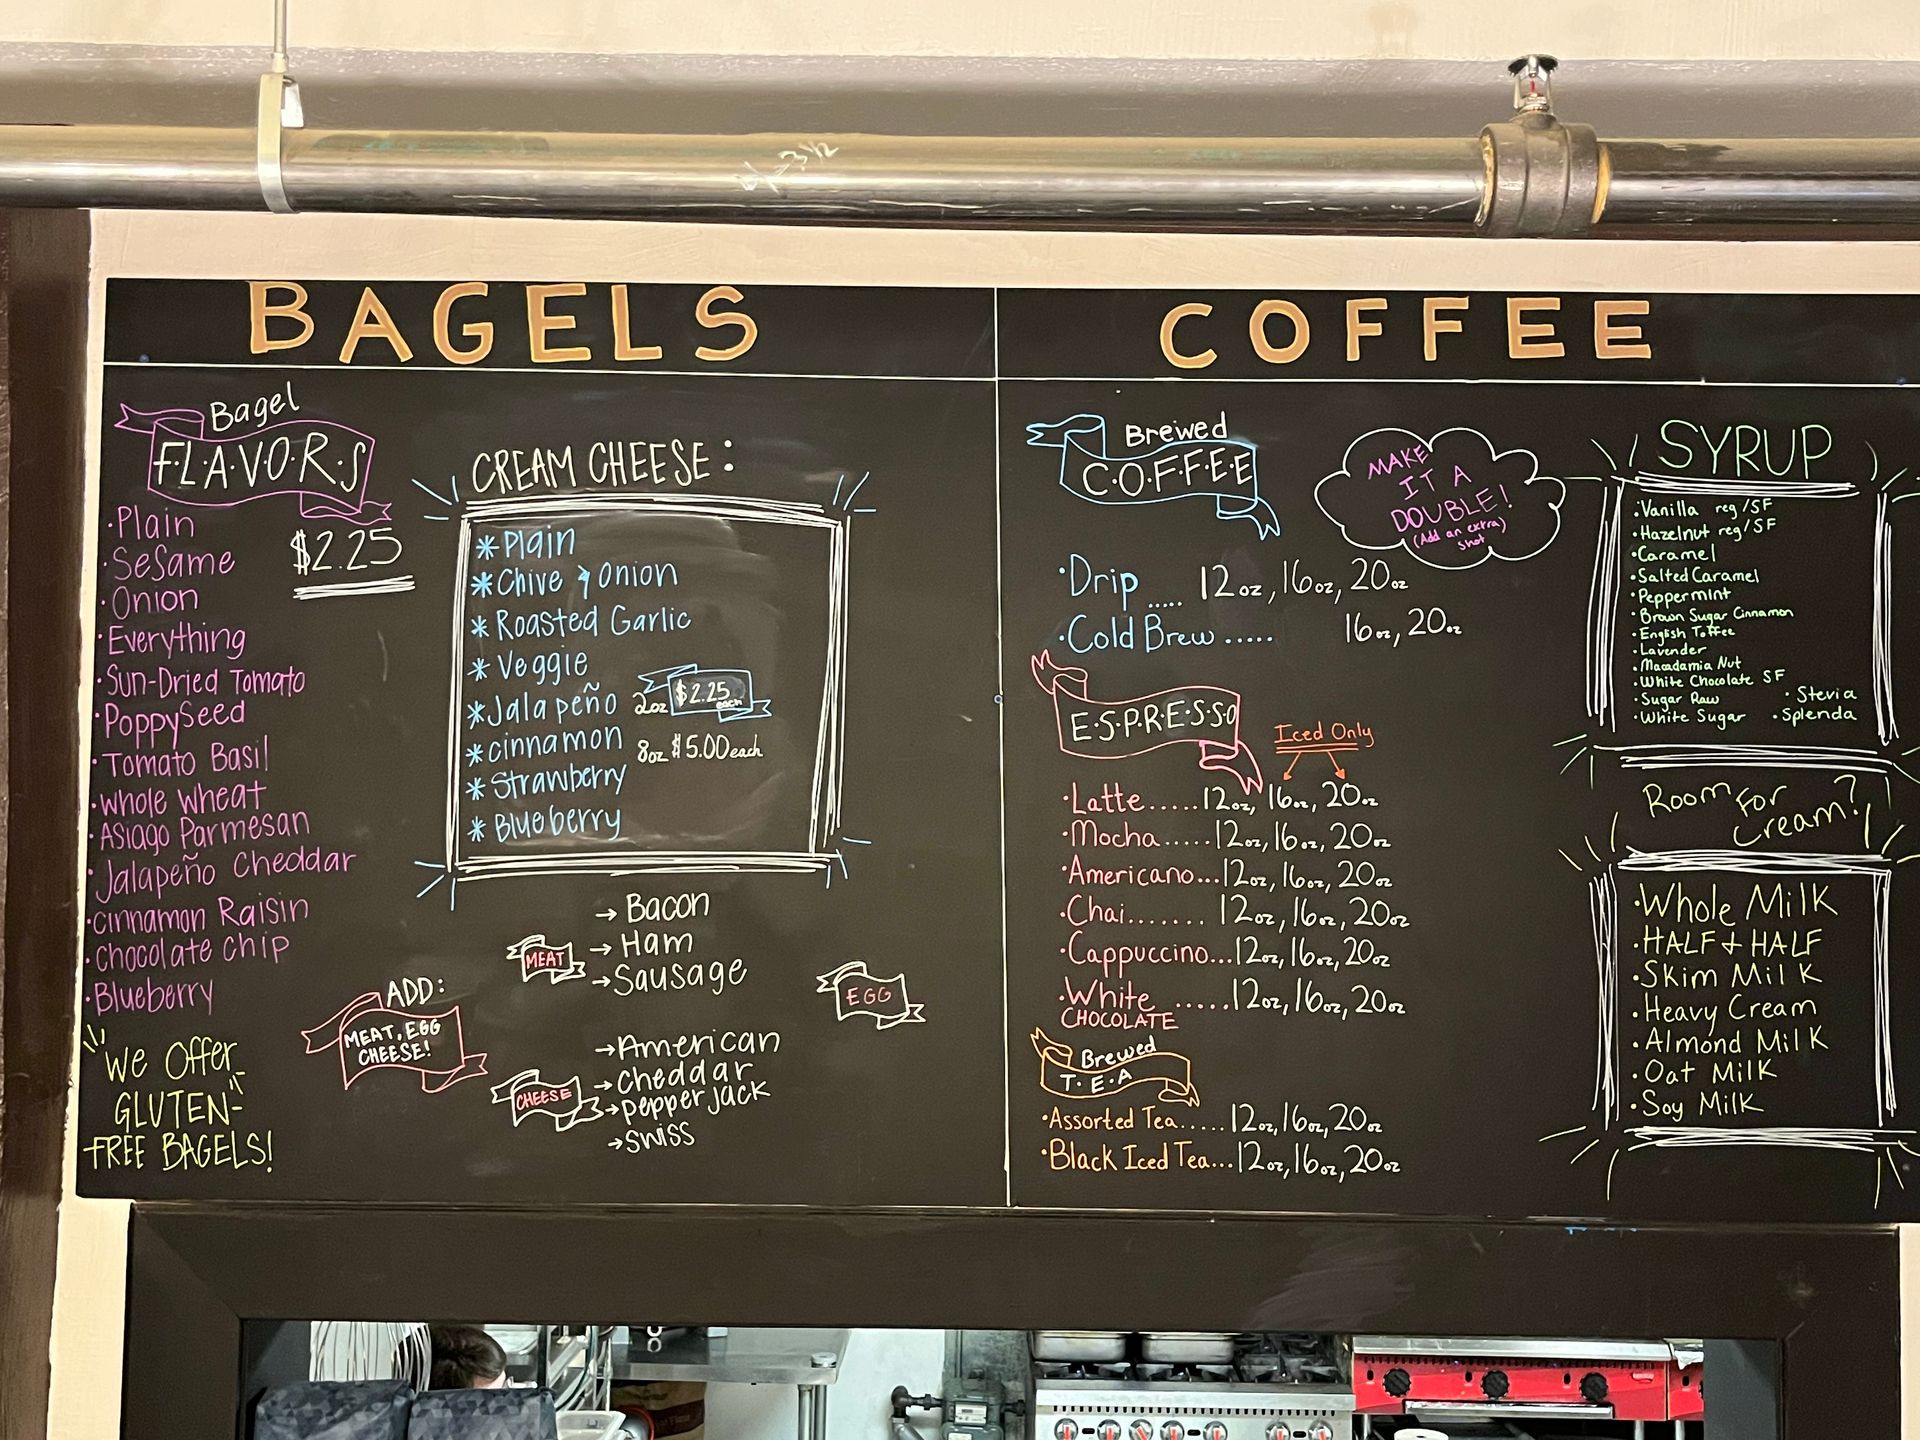 BAGELS
Bagel
F·L·A·V·O·R·S
$2.25
·Plain
·Sesame
·Onion
·Everything
·Sun-Dried Tomato
·PoppySeed
·Tomato Basil
·whole wheat
·Asiago Parmesan
·Jalapeño Cheddar
·cinnamon Raisin
·chocolate chip
·Blueberry
WE Offer
GLUTEN-
FREE BAGELS!
CREAM CHEESE:
*Plain
*Chive & Onion
*Roasted Garlic
*Veggie
*Jalapeño
*cinnamon
*Strawberry
*Blueberry
2oz $2.25 each
8oz $5.00 each
ADD:
MEAT, EGG
CHEESE!
MEAT
→Bacon
→Ham
→Sausage
EGG
CHEESE
→American
→cheddar
→pepper jack
→swiss
COFFEE
Brewed
C·O·F·F·E·E
MAKE
IT A
DOUBLE!
(Add an extra)
shot
·Drip ..... 12oz, 16oz, 20oz
·Cold Brew ..... 16oz, 20oz
E·S·P·R·E·S·S·O
Iced Only
·Latte.....12oz, 16oz, 20oz
·Mocha.....12oz, 16oz, 20oz
·Americano...12oz, 16oz, 20oz
·Chai.......12oz, 16oz, 20oz
·Cappuccino...12oz, 16oz, 20oz
·White .....12oz, 16oz, 20oz
CHOCOLATE
Brewed
T·E·A
·Assorted Tea.....12oz, 16oz, 20oz
·Black Iced Tea...12oz, 16oz, 20oz
SYRUP
·Vanilla reg/SF
·Hazelnut reg/SF
·Caramel
·Salted Caramel
·Peppermint
·Brown Sugar Cinnamon
·English Toffee
·Lavender
·Macadamia Nut
·White Chocolate SF
·Sugar Raw
·White Sugar
·Stevia
·Splenda
Room For
Cream?
·Whole Milk
·HALF & HALF
·Skim Milk
·Heavy Cream
·Almond Milk
·Oat Milk
·Soy Milk